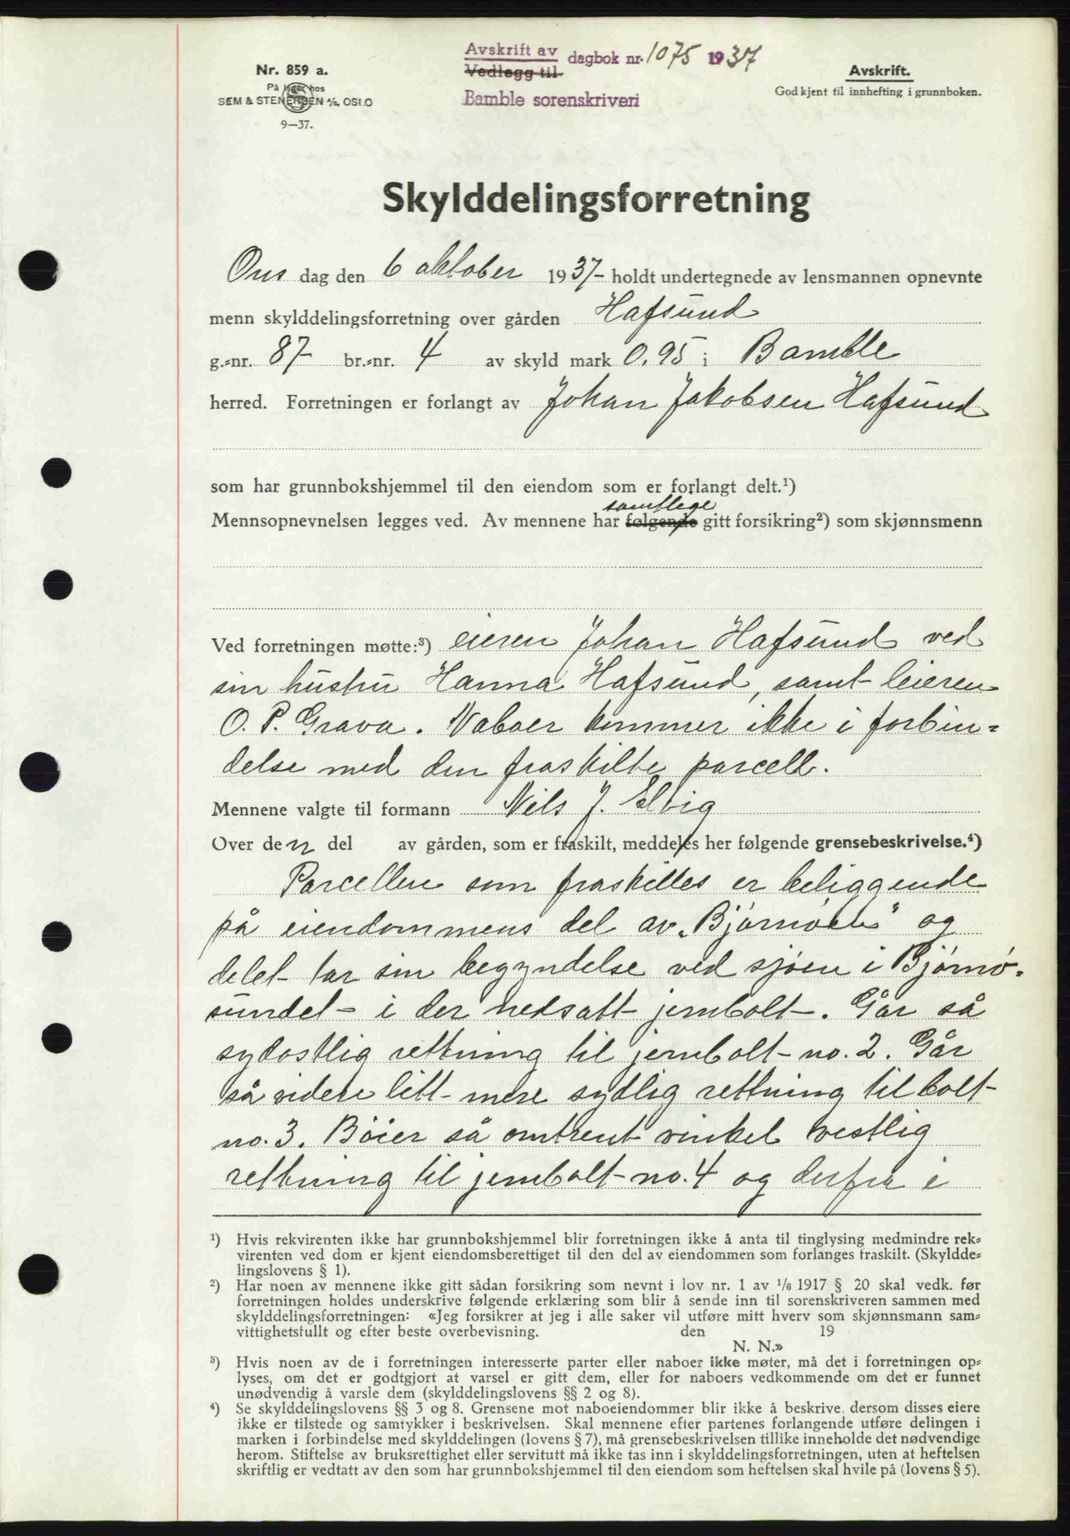 Avskrift av dagbok nr. 1075 1937
Vedlegg til
Bamble sorenskriveri
Nr. 859 a.
På lager hos
SEM & STENERSEN A/S, OSLO
9—37.
Avskrift.
Godkjent til innhefting i grunnboken.
Skylddelingsforretning
Ons dag den 6 oktober 1937- holdt undertegnede av lensmannen opnevnte
menn skylddelingsforretning over gården Hafsund
g.-nr. 87 br.-nr. 4 av skyld mark 0,95 i Bamble
herred. Forretningen er forlangt av Johan Jakobsen Hafsund
som har grunnbokshjemmel til den eiendom som er forlangt delt.¹)
samtlege
Mennsopnevnelsen legges ved. Av mennene har følgende gitt forsikring²) som skjønnsmenn
Ved forretningen møtte:³) eieren Johan Hafsund ved
sin hustru Hanna Hafsund, samt leieren
O. P. Grava. Naboer kommer ikke i forbin-
delse med den fraskilte parcell.
Mennene valgte til formann Nils J. Elvig
Over den del av gården, som er fraskilt, meddeles her følgende grensebeskrivelse.⁴)
Parcellen som fraskilles er beliggende
på eiendommens del av „Bjørnøen" og
delet tar sin begyndelse ved sjøen i Bjørnø-
sundet i der nedsatt jernbolt. Går så
sydostlig rettning til jernbolt no. 2. Går
så videre litt mere sydlig rettning til bolt
no. 3. Bøier så omtrent vinkel vestlig
rettning til jernbolt no. 4 og derfra i
¹) Hvis rekvirenten ikke har grunnbokshjemmel blir forretningen ikke å anta til tinglysing medmindre rek-
virenten ved dom er kjent eiendomsberettiget til den del av eiendommen som forlanges fraskilt. (Skyldde-
lingslovens § 1).
²) Har noen av mennene ikke gitt sådan forsikring som nevnt i lov nr. 1 av 1/6 1917 § 20 skal vedk. før
forretningen holdes underskrive følgende erklæring som blir å sende inn til sorenskriveren sammen med
skylddelingsforretningen: «Jeg forsikrer at jeg i alle saker vil utføre mitt hverv som skjønnsmann sam-
vittighetsfullt og efter beste overbevisning. den 19
N. N.»
³) Hvis noen av de i forretningen interesserte parter eller naboer ikke møter, må det i forretningen op-
lyses, om det er godtgjort at varsel er gitt dem, eller for naboers vedkommende om det er funnet
unødvendig å varsle dem (skylddelingslovens §§ 2 og 8).
⁴) Se skylddelingslovens §§ 3 og 8. Grensene mot naboeiendommer blir ikke å beskrive, dersom disses eiere
ikke er tilstede og samtykker i beskrivelsen. Skal mennene efter partenes forlangende utføre delingen i
marken i forbindelse med skylddelingen (lovens § 7), må grensebeskrivelsen tillike inneholde det nødvendige
herom. Stiftelse av bruksrettighet eller servitutt må ikke tas inn i skylddelingsforretningen, uten at heftelsen
skriftlig er vedtatt av den som har grunnbokshjemmel til den eiendom som heftelsen skal hvile på (lovens § 5).